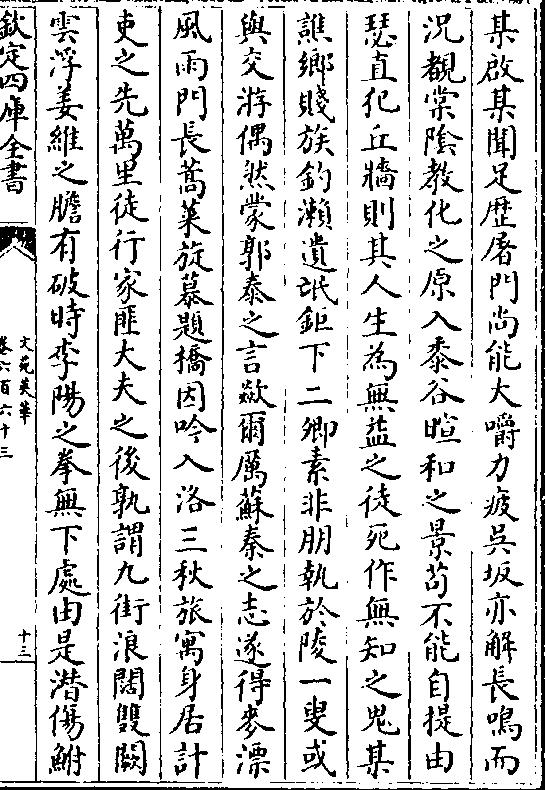 某啟某聞足歴屠門尚能大嚼力疲吳坂亦解長鳴而
況覩棠陰教化之原入黍谷暄和之景苟不能自提由
瑟直犯丘牆則其人生為無益之徒死作無知之鬼某
譙鄉賤族釣瀨遺氓鉅下二卿素非朋執於陵一叟或
與交游偶然蒙郭泰之言歘爾厲蘇秦之志遂得麥漂
風雨門長蒿萊旋慕題橋因吟入洛三秋旅寓身居計
吏之先萬里徒行家匪大夫之後孰謂九街浪闊雙闕
雲浮姜維之膽有破時李陽之拳無下處由是潜傷鮒
欽定四庫全書
文苑英華
卷六百六十三
十三